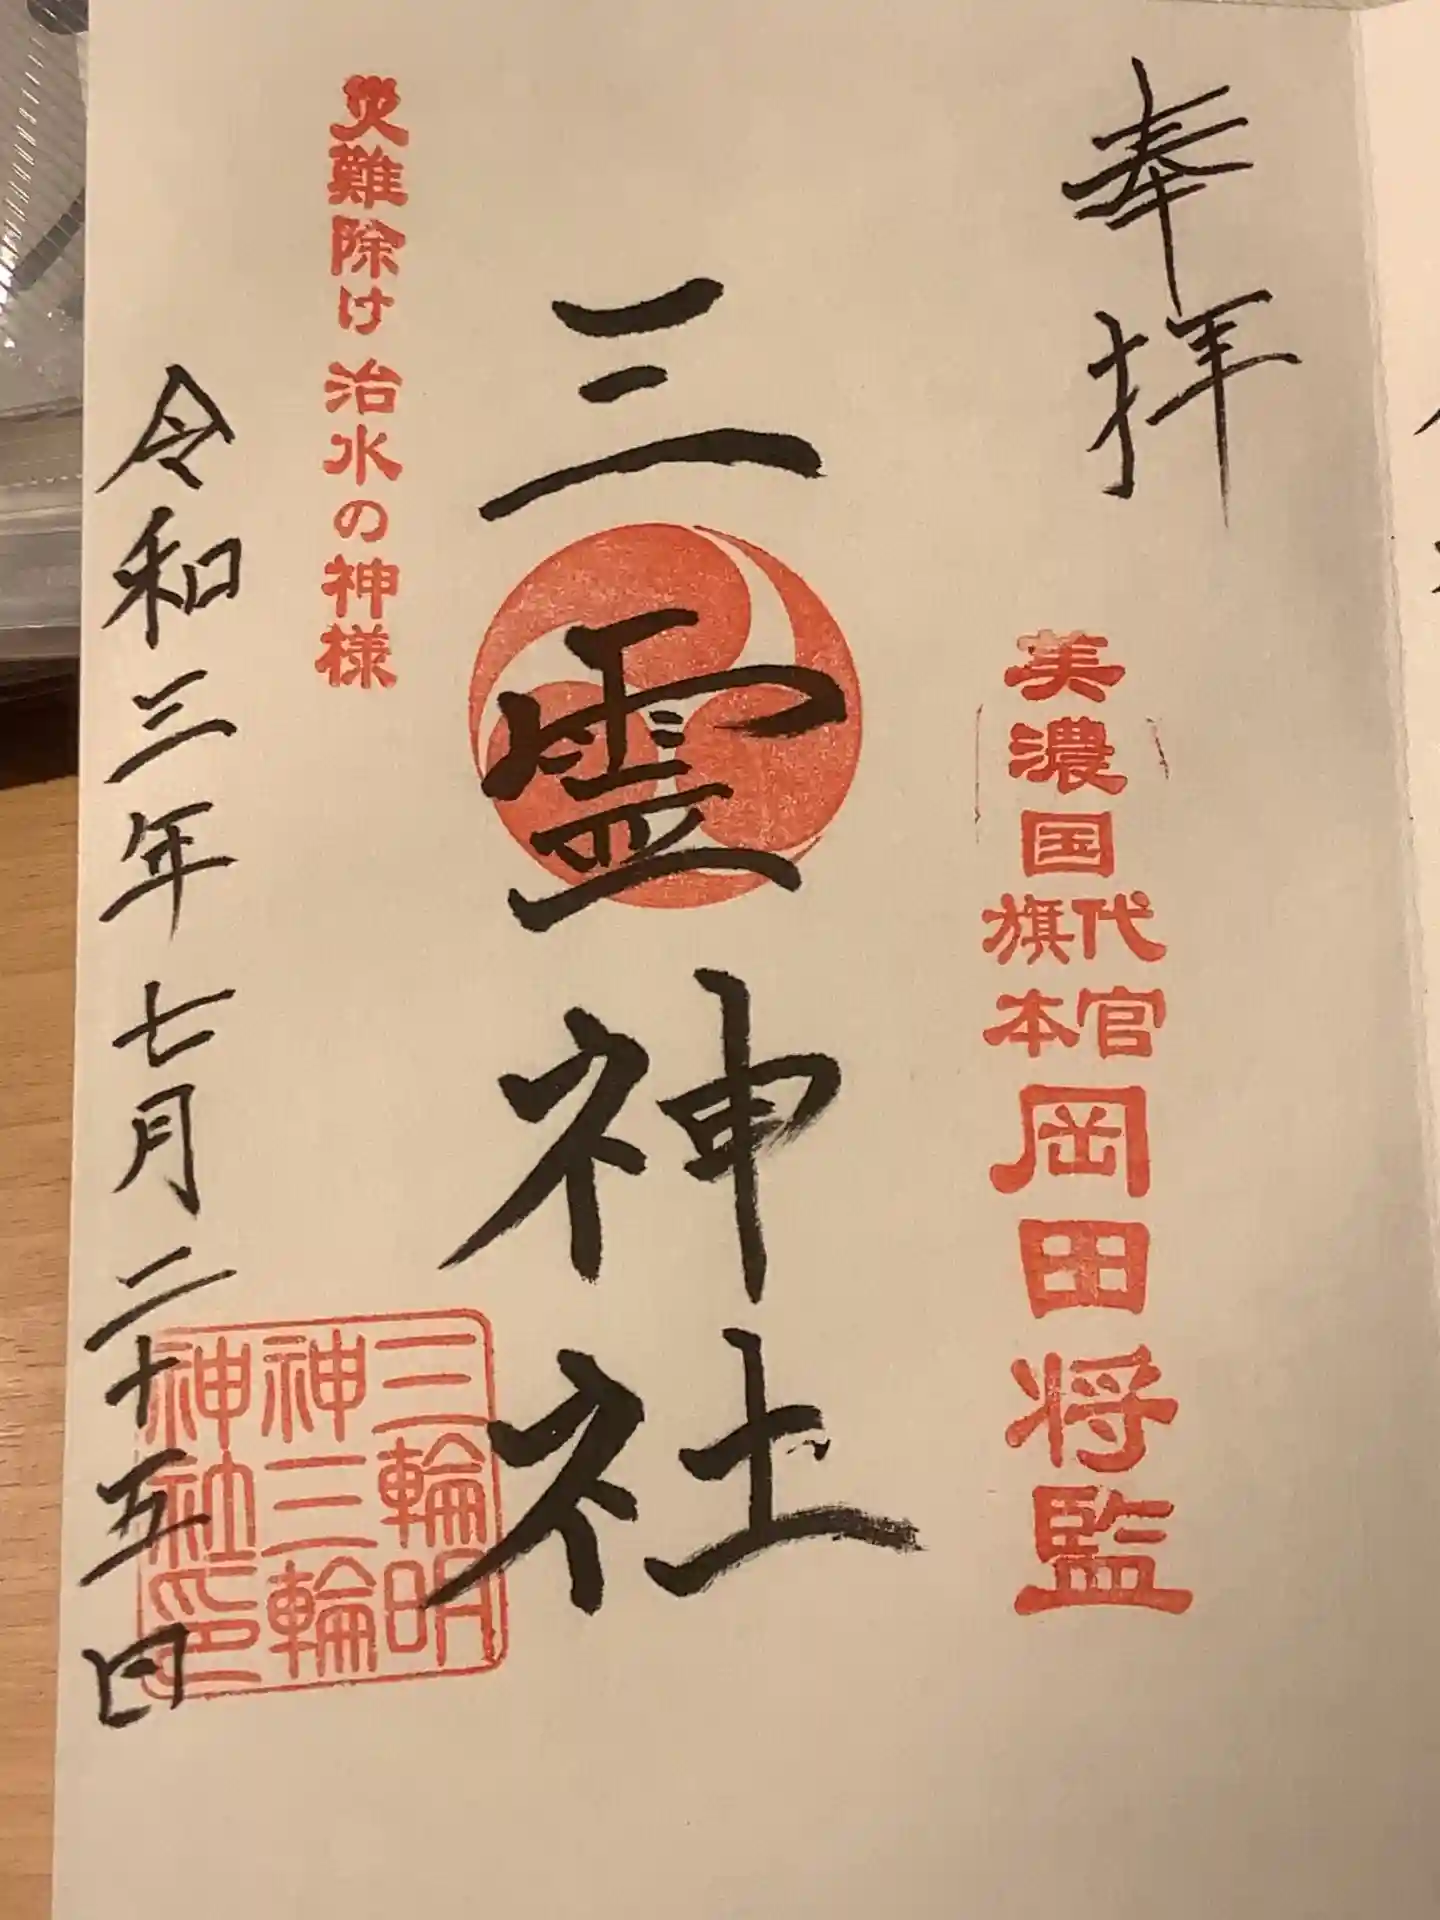 奉拝
美濃国代官旗本岡田将監
三霊神社
災難除け 治水の神様
令和三年七月二十五日
三輪明
神三輪
神社印